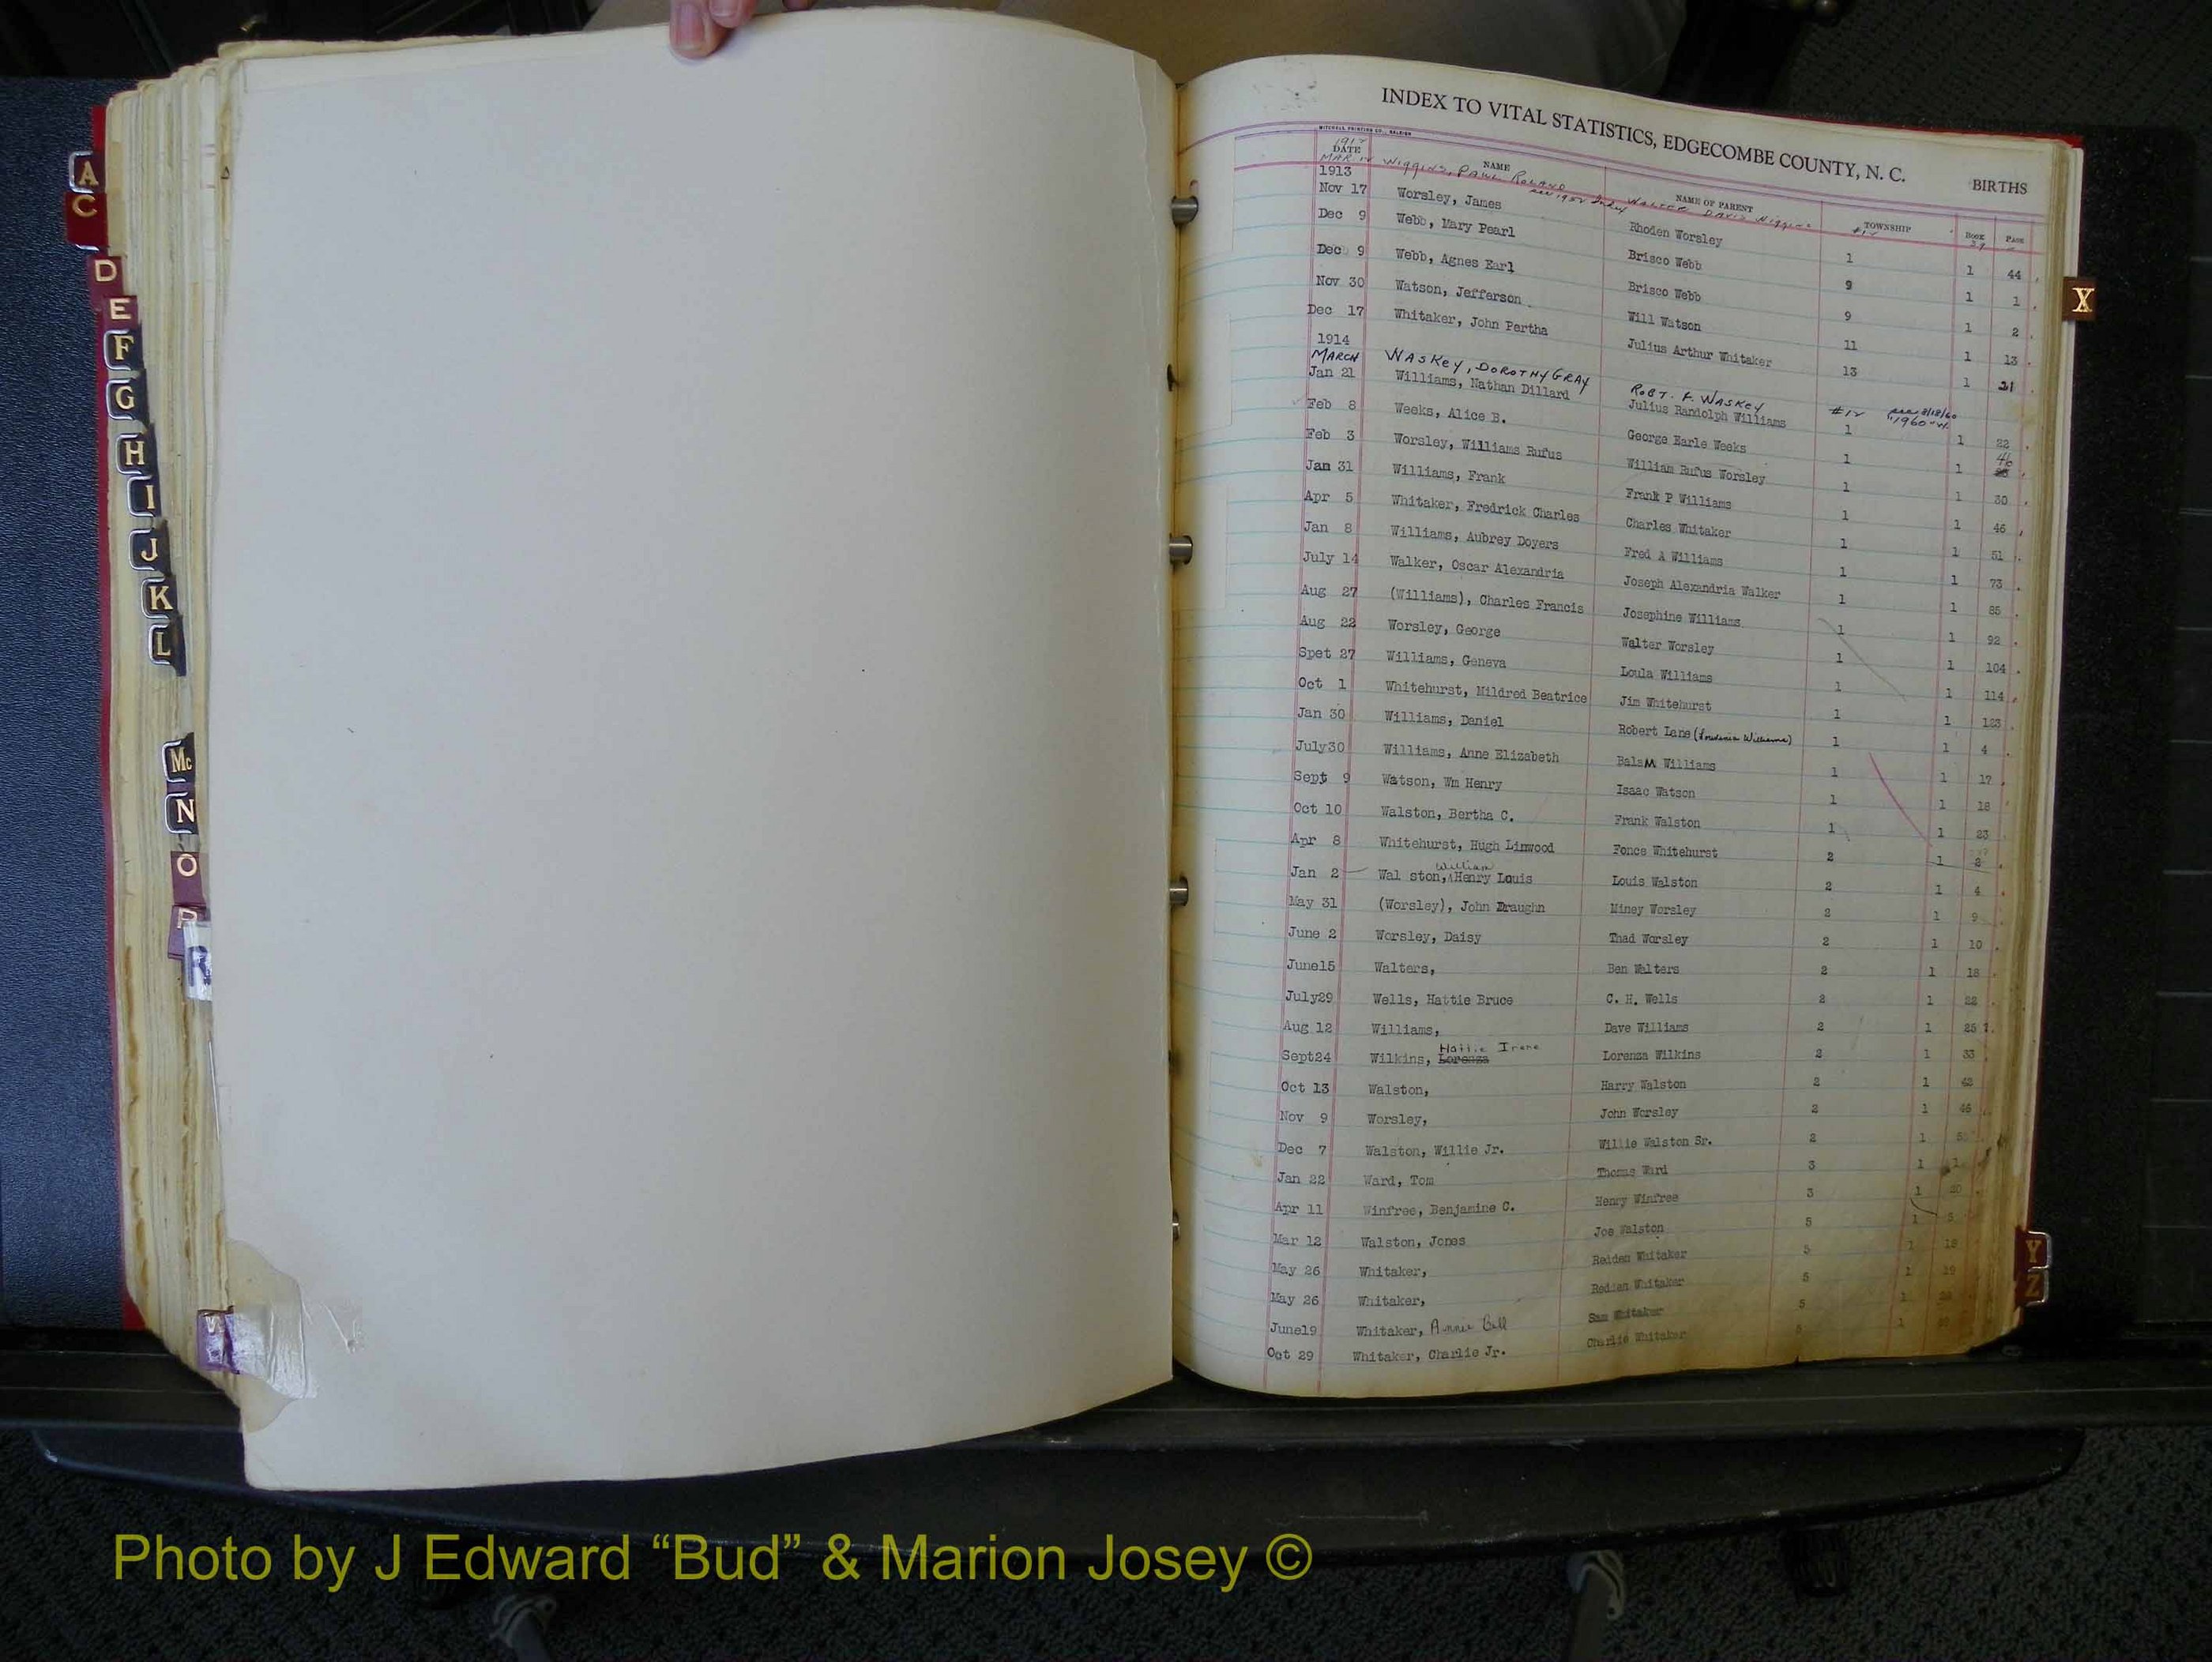 A
C
D
E
F
G
H
I
J
K
L
Mc
N
O
P
R
W
INDEX TO VITAL STATISTICS, EDGECOMBE COUNTY, N. C. BIRTHS
MITCHELL PRINTING CO., RALEIGH
DATE NAME NAME OF PARENT TOWNSHIP BOOK PAGE
MAR Wiggins, Paul Roland Walter David Wiggins
1913
Nov 17 Worsley, James Rhoden Worsley 1 1 44
Dec 9 Webb, Mary Pearl Brisco Webb 9 1 1
Dec 9 Webb, Agnes Earl Brisco Webb 9 1 2
Nov 30 Watson, Jefferson Will Watson 11 1 13
Dec 17 Whitaker, John Pertha Julius Arthur Whitaker 13 1 21
1914
MARCH WASKEY, DOROTHY GRAY ROBT. F. WASKEY
Jan 21 Williams, Nathan Dillard Julius Randolph Williams 1 1 22
Feb 8 Weeks, Alice B. George Earle Weeks 1 1
Feb 3 Worsley, Williams Rufus William Rufus Worsley 1 1 30
Jan 31 Williams, Frank Frank P Williams 1 1 46
Apr 5 Whitaker, Fredrick Charles Charles Whitaker 1 1 51
Jan 8 Williams, Aubrey Doyers Fred A Williams 1 1 73
July 14 Walker, Oscar Alexandria Joseph Alexandria Walker 1 1 85
Aug 27 (Williams), Charles Francis Josephine Williams 1 1 92
Aug 22 Worsley, George Walter Worsley 1 1 104
Spet 27 Williams, Geneva Loula Williams 1 1 114
Oct 1 Whitehurst, Mildred Beatrice Jim Whitehurst 1 1 123
Jan 30 Williams, Daniel Robert Lane 1 1 4
July30 Williams, Anne Elizabeth BalaM Williams 1 1 17
Sept 9 Watson, Wm Henry Isaac Watson 1 1 18
Oct 10 Walston, Bertha C. Frank Walston 1 1 23
Apr 8 Whitehurst, Hugh Linwood Fonce Whitehurst 2 1 2
William
Jan 2 Wal ston, Henry Louis Louis Walston 2 1 4
May 31 (Worsley), John Draughn Miney Worsley 2 1 9
June 2 Worsley, Daisy Thad Worsley 2 1 10
June15 Walters, Ben Walters 2 1 18
July29 Wells, Hattie Bruce C. H. Wells 2 1 22
Aug 12 Williams, Dave Williams 2 1 25
Hattie Irene
Sept24 Wilkins, Lorenza Lorenza Wilkins 2 1 33
Oct 13 Walston, Harry Walston 2 1 42
Nov 9 Worsley, John Worsley 2 1 46
Dec 7 Walston, Willie Jr. Willie Walston Sr. 2 1
Jan 22 Ward, Tom Thomas Ward 3 1
Apr 11 Winfree, Benjamine C. Henry Winfree 3 1
Mar 12 Walston, Jones Joe Walston 5 1 5
May 26 Whitaker, Redden Whitaker 5 1 18
May 26 Whitaker, Redden Whitaker 5 1 19
June19 Whitaker, Annie Bell Sam Whitaker 5 1
Oct 29 Whitaker, Charlie Jr. Charlie Whitaker 5 1
X
Y
Z
Photo by J Edward “Bud” & Marion Josey ©